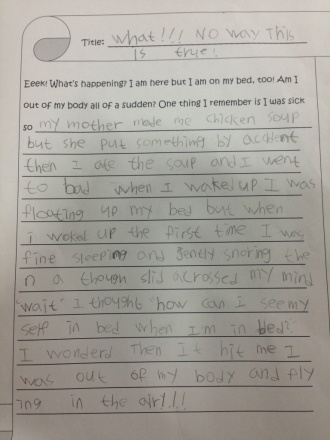 Title: What!!! NO way This
is true!
Eeek! What's happening? I am here but I am on my bed, too! Am I
out of my body all of a sudden? One thing I remember is I was sick
so my mother made me chicken soup
but she put something by accident
then I ate the soup and I went
to bad when I waked up I was
floating up my bed but when
i woked up the first time I was
fine sleeping and gently snoring the
n a though slid acrossed my mind
"wait" I thought "how can I see my
self in bed when I'm in bed?"
I wonderd Then it hit me I
was out of my body and fly
ing in the air!!!